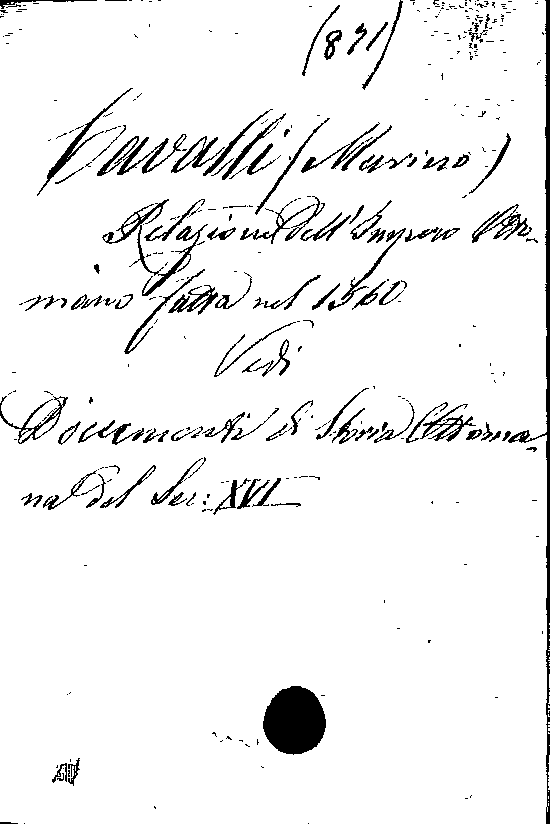 (871)
Cavalli (Marino)
Relazione dell'Impero Otto-
mano fatta nel 1560
Vedi
Documenti di Storia Ottoma-
na del Sec: XVI